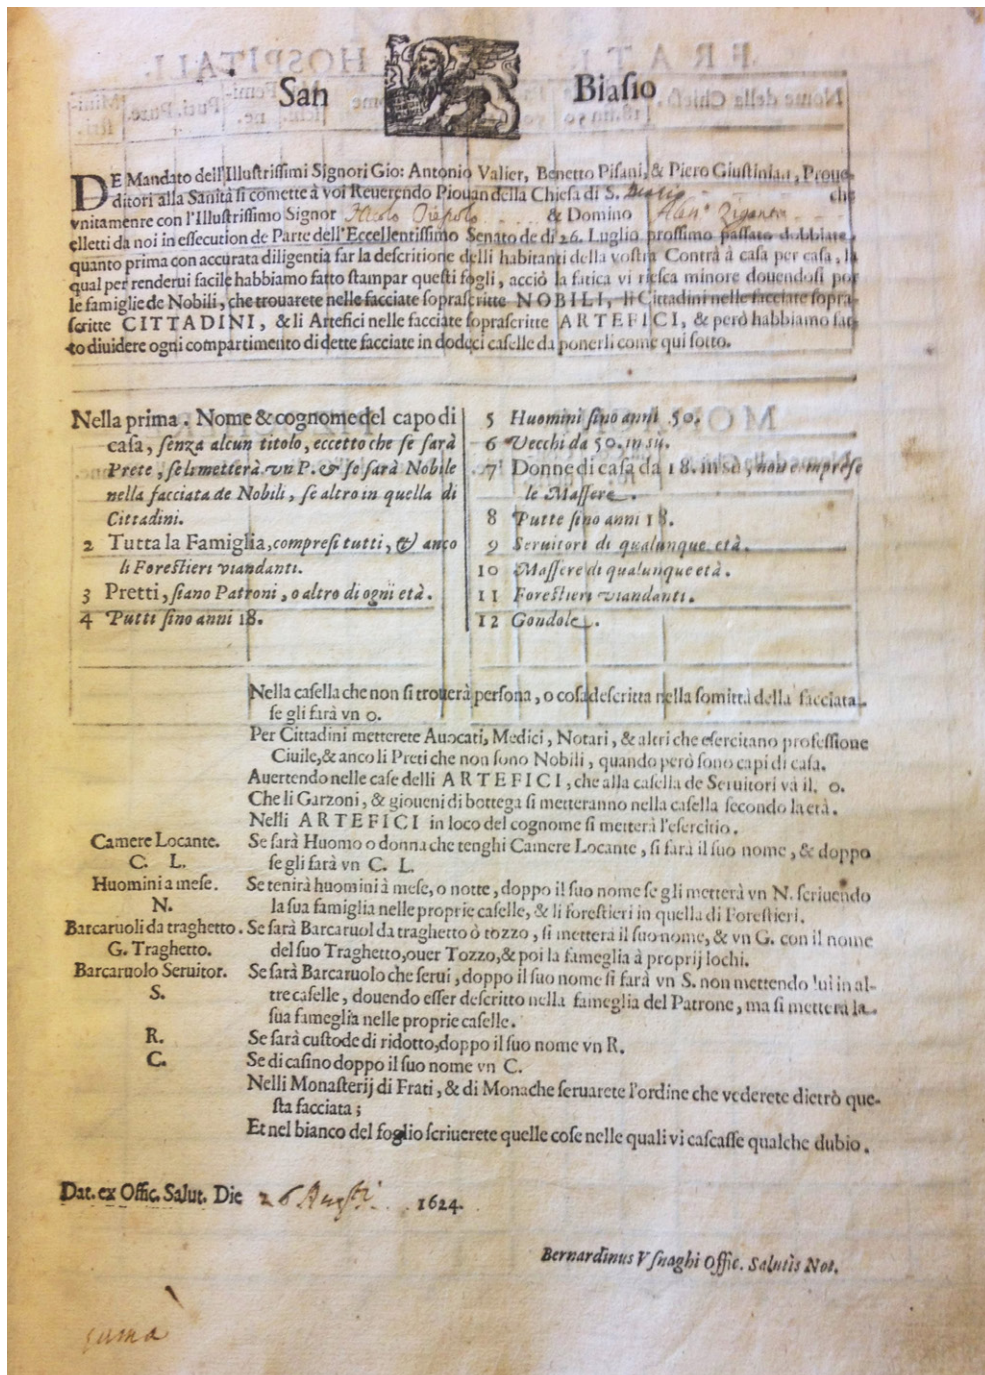 San Biasio
DE Mandato dell'Illustrissimi Signori Gio: Antonio Valier, Benetto Pisani, & Piero Giustinian, Proue-
ditori alla Sanità si comette à voi Reuerendo Piouan della Chiesa di S. Biasio che
vnitamenre con l'Illustrissimo Signor & Domino
elletti da noi in essecution de Parte dell'Eccellentissimo Senato de di 26. Luglio prossimo passato dobbiate,
quanto prima con accurata diligentia far la descritione delli habitanti della vostra Contrà à casa per casa, la
qual per renderui facile habbiamo fatto stampar questi fogli, acciò la fatica vi riesca minore douendosi por
le famiglie de Nobili, che trouarete nelle facciate soprascritte NOBILI, li Cittadini nelle facciate sopra-
scritte CITTADINI, & li Artefici nelle facciate soprascritte ARTEFICI, & però habbiamo fat-
to diuidere ogni compartimento di dette facciate in dodeci caselle da ponerli come qui sotto.
Nella prima. Nome & cognome del capo di
casa, senza alcun titolo, eccetto che se sarà
Prete, se li metterà vn P. & se sarà Nobile
nella facciata de Nobili, se altro in quella di
Cittadini.
2 Tutta la Famiglia, compresi tutti, & anco
li Forestieri viandanti.
3 Pretti, siano Patroni, o altro di ogni età.
4 Putti sino anni 18.
5 Huomini sino anni 50.
6 Vecchi da 50. in sù.
7 Donne di casa da 18. in sù, non comprese
le Massere.
8 Putte sino anni 18.
9 Seruitori di qualunque età.
10 Massere di qualunque età.
11 Forestieri viandanti.
12 Gondole.
Nella casella che non si trouerà persona, o cosa descritta nella somittà della facciata.
se gli farà vn 0.
Per Cittadini metterete Auocati, Medici, Notari, & altri che esercitano professione
Ciuile, & anco li Preti che non sono Nobili, quando però sono capi di casa.
Auertendo nelle case delli ARTEFICI, che alla casella de Seruitori và il. 0.
Che li Garzoni, & gioueni di bottega si metteranno nella casella secondo la età.
Nelli ARTEFICI in loco del cognome si metterà l'esercitio.
Camere Locante. Se sarà Huomo o donna che tenghi Camere Locante, si farà il suo nome, & doppo
C. L. se gli farà vn C. L.
Huomini a mese. Se tenirà huomini à mese, o notte, doppo il suo nome se gli metterà vn N. scriuendo
N. la sua famiglia nelle proprie caselle, & li forestieri in quella di Forestieri.
Barcaruoli da traghetto. Se sarà Barcaruol da traghetto ò tozzo, si metterà il suo nome, & vn G. con il nome
G. Traghetto. del suo Traghetto, ouer Tozzo, & poi la fameglia à proprij lochi.
Barcaruolo Seruitor. Se sarà Barcaruolo che serui, doppo il suo nome si farà vn S. non mettendo lui in al-
S. tre caselle, douendo esser descritto nella fameglia del Patrone, ma si metterà la
sua fameglia nelle proprie caselle.
R. Se sarà custode di ridotto, doppo il suo nome vn R.
C. Se di casino doppo il suo nome vn C.
Nelli Monasterij di Frati, & di Monache seruarete l'ordine che vederete dietrò que-
sta facciata;
Et nel bianco del foglio scriuerete quelle cose nelle quali vi cascasse qualche dubio.
Dat. ex Offic. Salut. Die 26 Augsti 1624.
Bernardinus Vsnaghi Offic. Salutis Not.